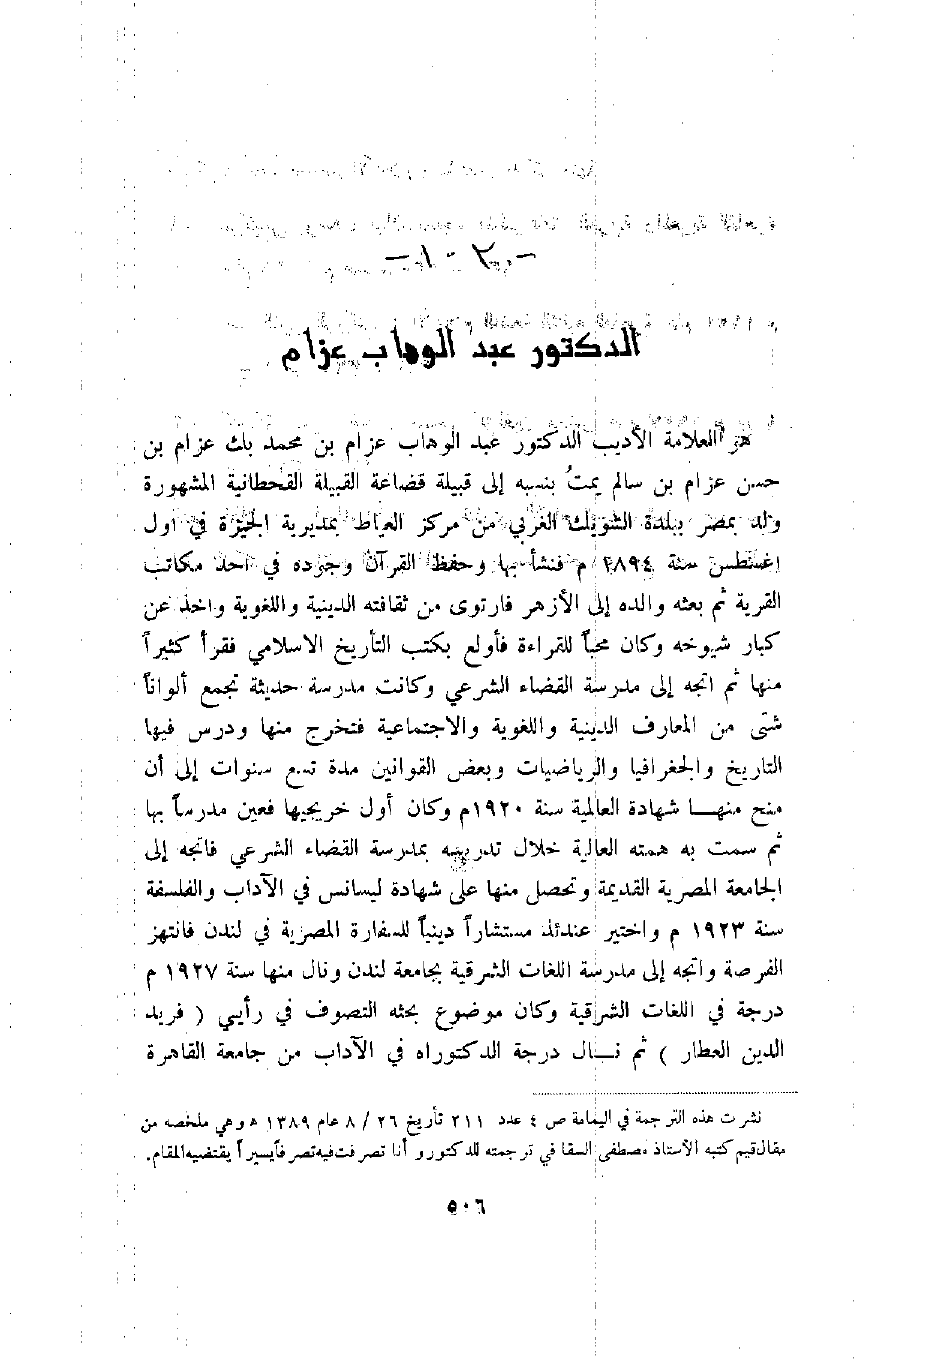 الدكتور عبد الوهاب عزام
هو العلامة الأديب الدكتور عبد الوهاب عزام بن محمد بك عزام بن
حسن عزام بن سالم يمتُ بنسبه إلى قبيلة قضاعة القبيلة القحطانية المشهورة
ولد بمصر ببلدة الشوبك الغربي من مركز العياط بمديرية الجيزة في اول
اغسطس سنة ١٨٩٤ م فنشأ بها وحفظ القرآن وجوده في احد مكاتب
القرية ثم بعثه والده إلى الأزهر فارتوى من ثقافته الدينية واللغوية واخذ عن
كبار شيوخه وكان محباً للقراءة فأولع بكتب التأريخ الاسلامي فقرأ كثيراً
منها ثم اتجه إلى مدرسة القضاء الشرعي وكانت مدرسة حديثة تجمع ألواناً
شتى من المعارف الدينية واللغوية والاجتماعية فتخرج منها ودرس فيها
التاريخ والجغرافيا والرياضيات وبعض القوانين مدة تسع سنوات إلى أن
منح منهـــا شهادة العالمية سنة ١٩٢٠م وكان أول خريجيها فعين مدرساً بها
ثم سمت به همته العالية خلال تدريسه بمدرسة القضاء الشرعي فاتجه إلى
الجامعة المصرية القديمة وتحصل منها على شهادة ليسانس في الآداب والفلسفة
سنة ١٩٢٣ م واختير عندئذ مستشاراً دينياً للسفارة المصرية في لندن فانتهز
الفرصة واتجه إلى مدرسة اللغات الشرقية بجامعة لندن ونال منها سنة ١٩٢٧ م
درجة في اللغات الشرقية وكان موضوع بحثه التصوف في رأيي ( فريد
الدين العطار ) ثم نـــال درجة الدكتوراه في الآداب من جامعة القاهرة
نشرت هذه الترجمة في اليمامة ص ٤ عدد ٢١١ تأريخ ٢٦ / ٨ عام ١٣٨٩ ه وهي ملخصه من
مقال قيم كتبه الأستاذ مصطفى السقا في ترجمته للدكتور و أنا تصرفت فيه تصرفاً يسيراً يقتضيه المقام.
٥٠٦